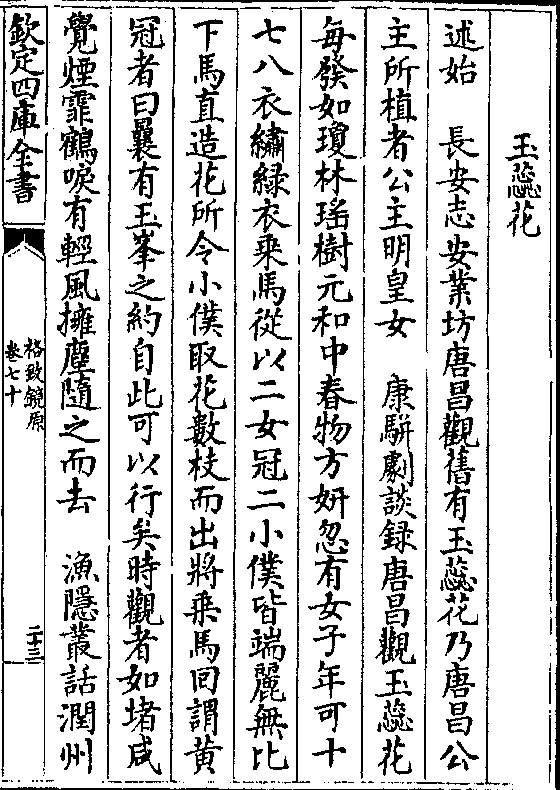 玉蘂花
述始　長安志安業坊唐昌觀舊有玉蘂花乃唐昌公
主所植者公主明皇女　康駢劇談録唐昌觀玉蘂花
每發如瓊林瑶樹元和中春物方妍忽有女子年可十
七八衣繡緑衣乗馬從以二女冠二小僕皆端麗無比
下馬直造花所令小僕取花數枝而出將乗馬回謂黄
冠者曰曩有玉峯之約自此可以行矣時觀者如堵咸
覺煙霏鶴唳有輕風擁塵隨之而去　漁隱叢話潤州
欽定四庫全書
格致鏡原
卷七十
二十三